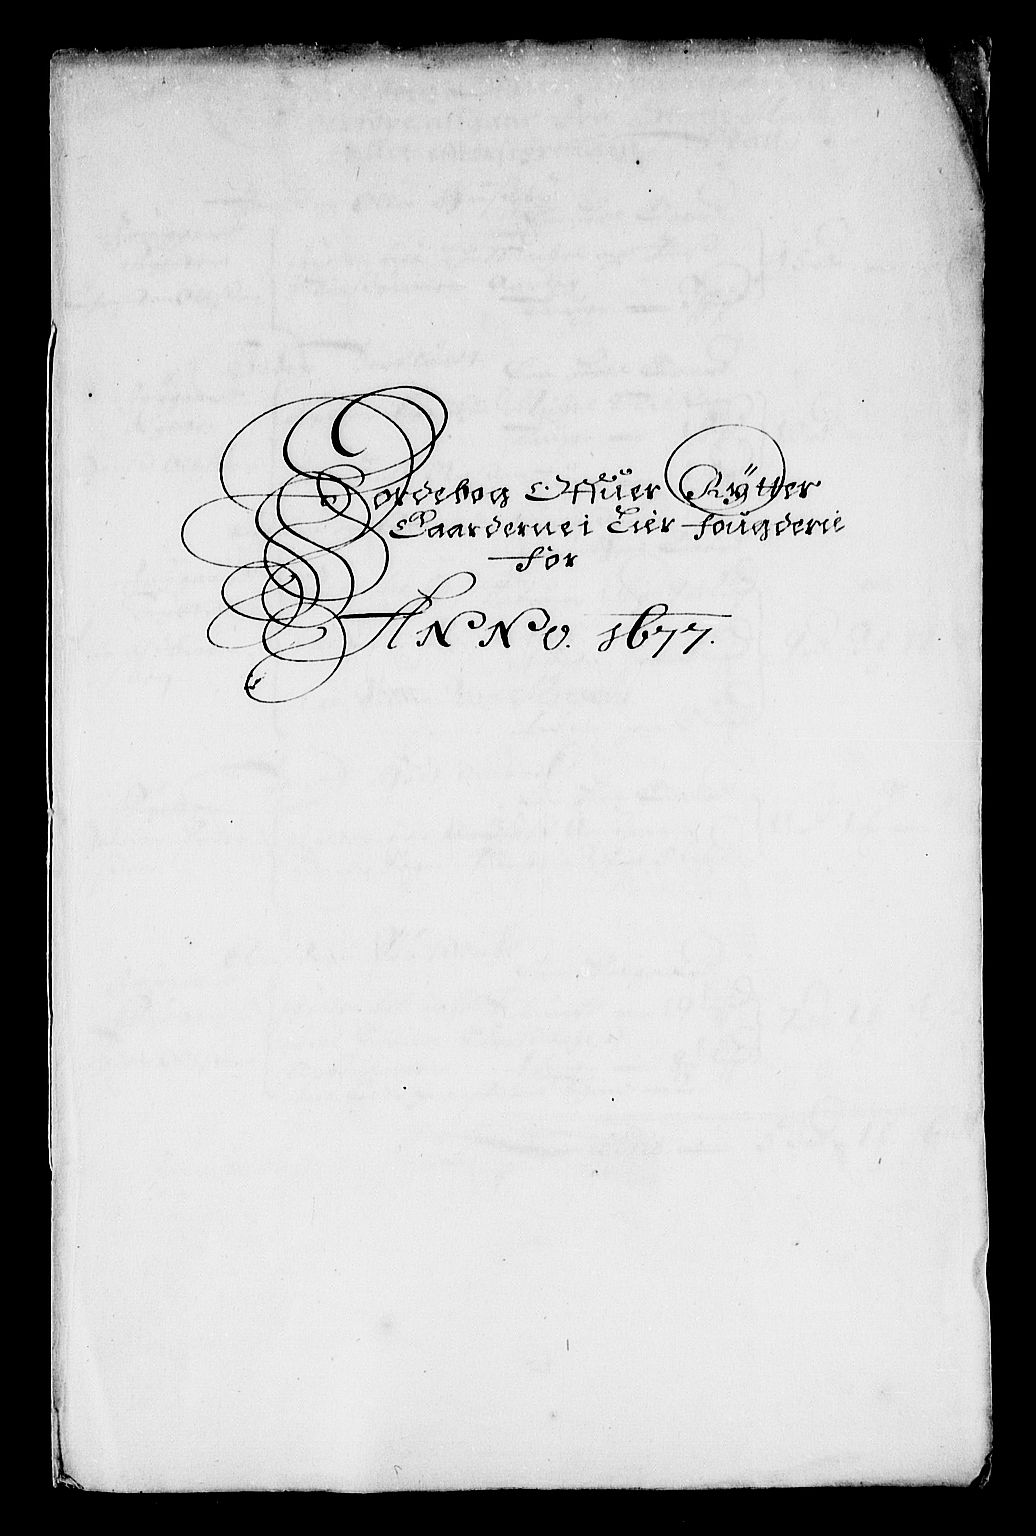 Jordebog Offuer Rÿtter
Gaarderne i Lier fougderie
for
ANNO. 1677.